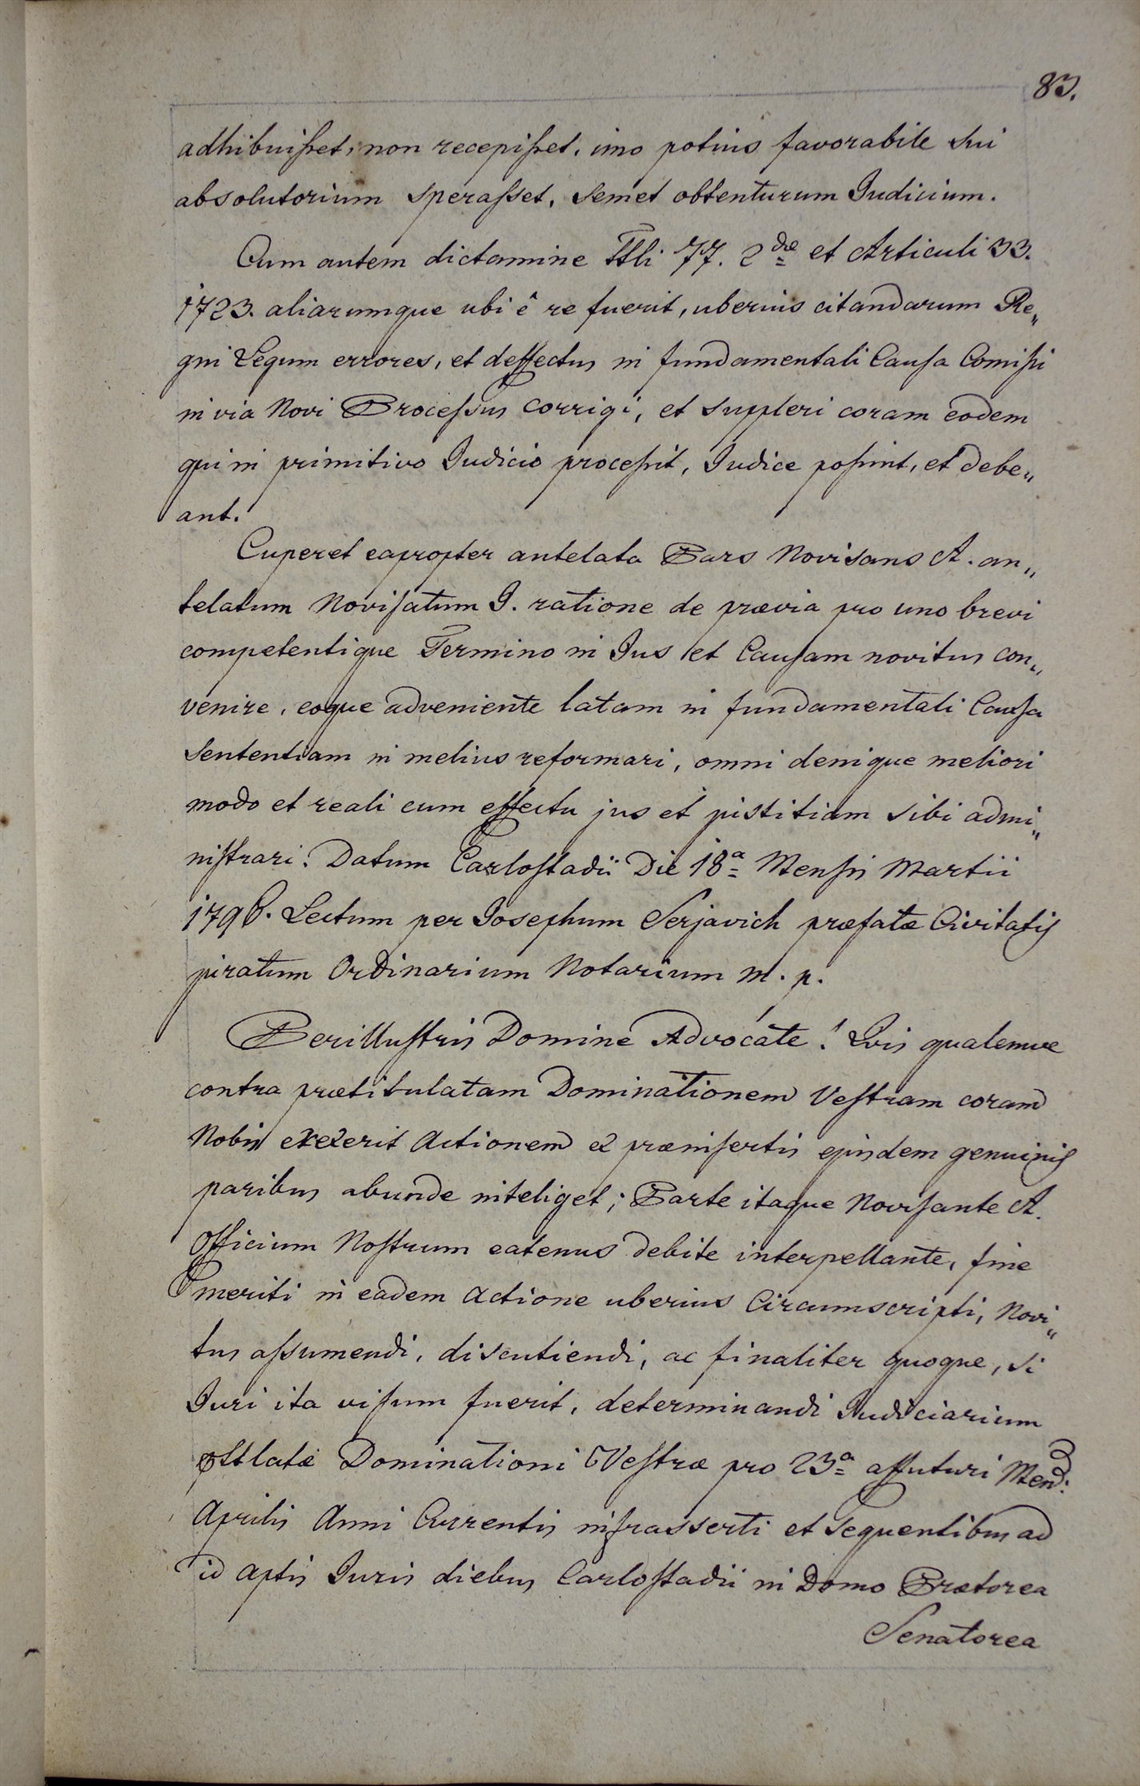 83.
adhibuisset, non recepisset, imo potius favorabile sui
absolutorium sperasset, semet obtenturum Judicium.
Cum autem dictamine Ttli 77. 2dæ et Articuli 33.
1723. aliarumque ubi ê re fuerit, uberius citandarum Re„
gni Legum errores, et deffectus in fundamentali Causa Comissi
in via Novi Processus corrigi, et suppleri coram eodem
qui in primitivo Judicio processit, Judice possint, et debe„
ant.
Cuperet eapropter antelata Pars Novisans A. an„
telatum Novisatum I. ratione de prævia pro uno brevi
competentique Termino in Jus et Causam novitus con„
venire, eoque adveniente latam in fundamentali Causa
Sententiam in melius reformari, omni denique meliori
modo et reali cum effectu jus et justitiam sibi admi„
nistrari. Datum Carlostadii Die 18a Mensis Martii
1796. Lectum per Josephum Serjavich præfatæ Civitatis
juratum Ordinarium Notarium m. p.
Perillustris Domine Advocate! Quis qualemve
contra prætitulatam Dominationem Vestram coram
Nobis exererit Actionem ex præinsertis ejusdem genuinis
paribus abunde inteliget; Parte itaque Novisante A.
Officium Nostrum eatenus debite interpellante, fine
meriti in eadem Actione uberius Circumscripti, Novi„
tus assumendi, discutiendi, ac finaliter quoque, si
Juri ita visum fuerit, determinandi Judiciarium
Dominationi Vestræ pro 23a affuturi Mensis
Aprilis Anni Currentis infrasserti et sequentibus ad
id aptis Juris diebus Carlostadii in Domo Prætorea
Senatorea